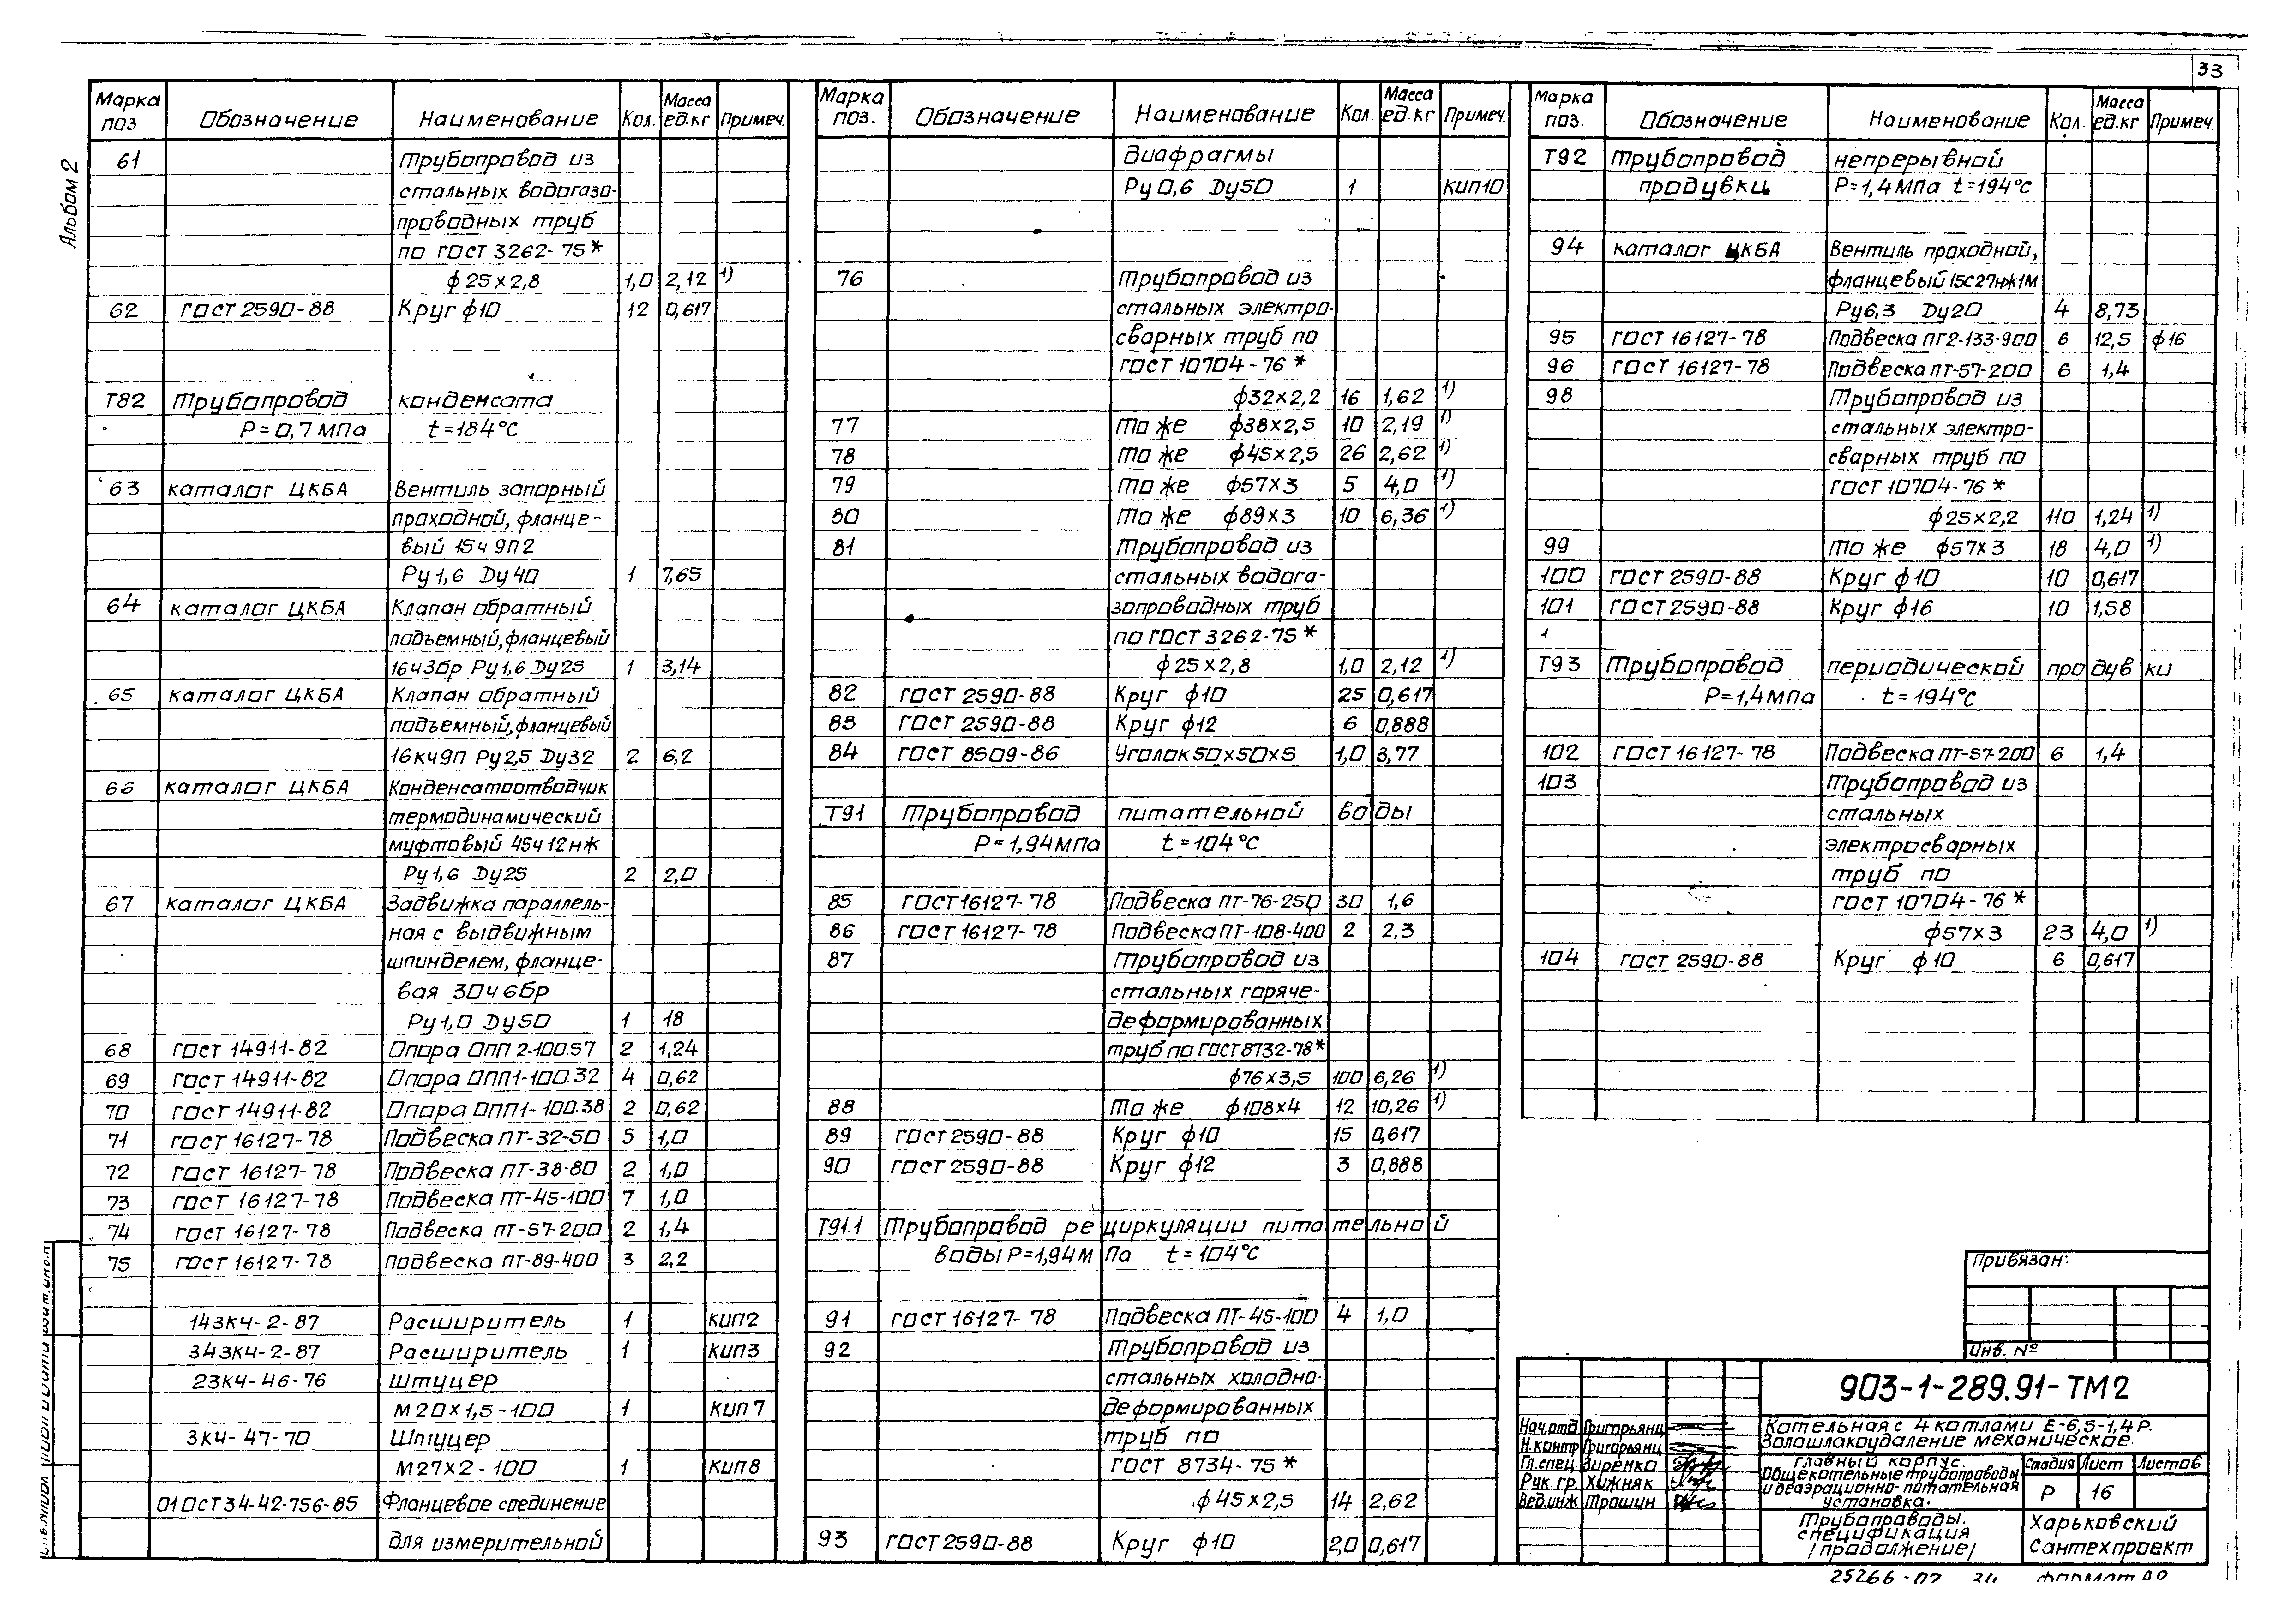 33
Альбом 2
Марка поз Обозначение Наименование Кол. Масса ед.кг Примеч.
61 Трубопровод из
стальных водогазо-
проводных труб
по ГОСТ 3262-75*
ф25х2,8 1,0 2,12 1)
62 ГОСТ 2590-88 Круг ф10 12 0,617
Т82 Трубопровод конденсата
Р=0,7МПа t=184°С
63 каталог ЦКБА Вентиль запорный
проходной, фланце-
вый 15ч 9п2
Ру1,6 Ду40 1 7,65
64 каталог ЦКБА Клапан обратный
подъемный, фланцевый
16ч3бр Ру1,6 Ду25 1 3,14
65 каталог ЦКБА Клапан обратный
подъемный, фланцевый
16кч9п Ру2,5 Ду32 2 6,2
66 каталог ЦКБА Конденсатоотводчик
термодинамический
муфтовый 45ч12нж
Ру1,6 Ду25 2 2,0
67 каталог ЦКБА Задвижка параллель-
ная с выдвижным
шпинделем, фланце-
вая 30ч6бр
Ру1,0 Ду50 1 18
68 ГОСТ 14911-82 Опора ОПП2-100.57 2 1,24
69 ГОСТ 14911-82 Опора ОПП1-100.32 4 0,62
70 ГОСТ 14911-82 Опора ОПП1-100.38 2 0,62
71 ГОСТ 16127-78 Подвеска ПТ-32-50 5 1,0
72 ГОСТ 16127-78 Подвеска ПТ-38-80 2 1,0
73 ГОСТ 16127-78 Подвеска ПТ-45-100 7 1,0
74 ГОСТ 16127-78 Подвеска ПТ-57-200 2 1,4
75 ГОСТ 16127-78 Подвеска ПТ-89-400 3 2,2
143К4-2-87 Расширитель 1 КИП2
343К4-2-87 Расширитель 1 КИП3
23К4-46-76 Штуцер
М20х1,5-100 1 КИП7
3К4-47-70 Штуцер
М27х2-100 1 КИП8
01ОСТ34-42-756-85 Фланцевое соединение
для измерительной
Марка поз. Обозначение Наименование Кол. Масса ед.кг Примеч.
диафрагмы
Ру0,6 Ду50 1 КИП10
76 Трубопровод из
стальных электро-
сварных труб по
ГОСТ 10704-76*
ф32х2,2 16 1,62 1)
77 То же ф38х2,5 10 2,19 1)
78 То же ф45х2,5 26 2,62 1)
79 То же ф57х3 5 4,0 1)
80 То же ф89х3 10 6,36 1)
81 Трубопровод из
стальных водога-
зопроводных труб
по ГОСТ 3262-75*
ф25х2,8 1,0 2,12 1)
82 ГОСТ 2590-88 Круг ф10 25 0,617
83 ГОСТ 2590-88 Круг ф12 6 0,888
84 ГОСТ 8509-86 Уголок50х50х5 1,0 3,77
Т91 Трубопровод питательной воды
Р=1,94МПа t=104°С
85 ГОСТ16127-78 Подвеска ПТ-76-250 30 1,6
86 ГОСТ16127-78 Подвеска ПТ-108-400 2 2,3
87 Трубопровод из
стальных горяче-
деформированных
труб по ГОСТ8732-78*
ф76х3,5 100 6,26 1)
88 То же ф108х4 12 10,26 1)
89 ГОСТ2590-88 Круг ф10 15 0,617
90 ГОСТ2590-88 Круг ф12 3 0,888
Т91.1 Трубопровод рециркуляции питательной
воды Р=1,94МПа t=104°С
91 ГОСТ 16127-78 Подвеска ПТ-45-100 4 1,0
92 Трубопровод из
стальных холодно-
деформированных
труб по
ГОСТ 8734-75*
ф45х2,5 14 2,62
93 ГОСТ2590-88 Круг ф10 2,0 0,617
Марка поз. Обозначение Наименование Кол. Масса ед.кг Примеч.
Т92 Трубопровод непрерывной
продувки Р=1,4МПа t=194°С
94 каталог ЦКБА Вентиль проходной,
фланцевый 15с27нж1м
Ру6,3 Ду20 4 8,73
95 ГОСТ 16127-78 Подвеска ПГ2-133-900 6 12,5 ф16
96 ГОСТ 16127-78 Подвеска ПТ-57-200 6 1,4
98 Трубопровод из
стальных электро-
сварных труб по
ГОСТ 10704-76*
ф25х2,2 110 1,24 1)
99 То же ф57х3 18 4,0 1)
100 ГОСТ 2590-88 Круг ф10 10 0,617
101 ГОСТ2590-88 Круг ф16 10 1,58
Т93 Трубопровод периодической продувки
Р=1,4МПа t=194°С
102 ГОСТ 16127-78 Подвеска ПТ-57-200 6 1,4
103 Трубопровод из
стальных
электросварных
труб по
ГОСТ 10704-76*
ф57х3 23 4,0 1)
104 ГОСТ 2590-88 Круг ф10 6 0,617
Привязан:
Инв. №
903-1-289.91-ТМ2
Котельная с 4 котлами Е-6,5-1,4Р.
Золошлакоудаление механическое.
Нач.отд Григорьянц
Н.контр Григорьянц
Гл.спец. Зиренко
Рук. гр. Хижняк
Вед.инж Трошин
Главный корпус.
Общекотельные трубопроводы
и деаэрационно-питательная
установка.
Стадия Лист Листов
Р 16
Трубопроводы.
Спецификация
/продолжение/
Харьковский
Сантехпроект
25266-02 34 Формат А2